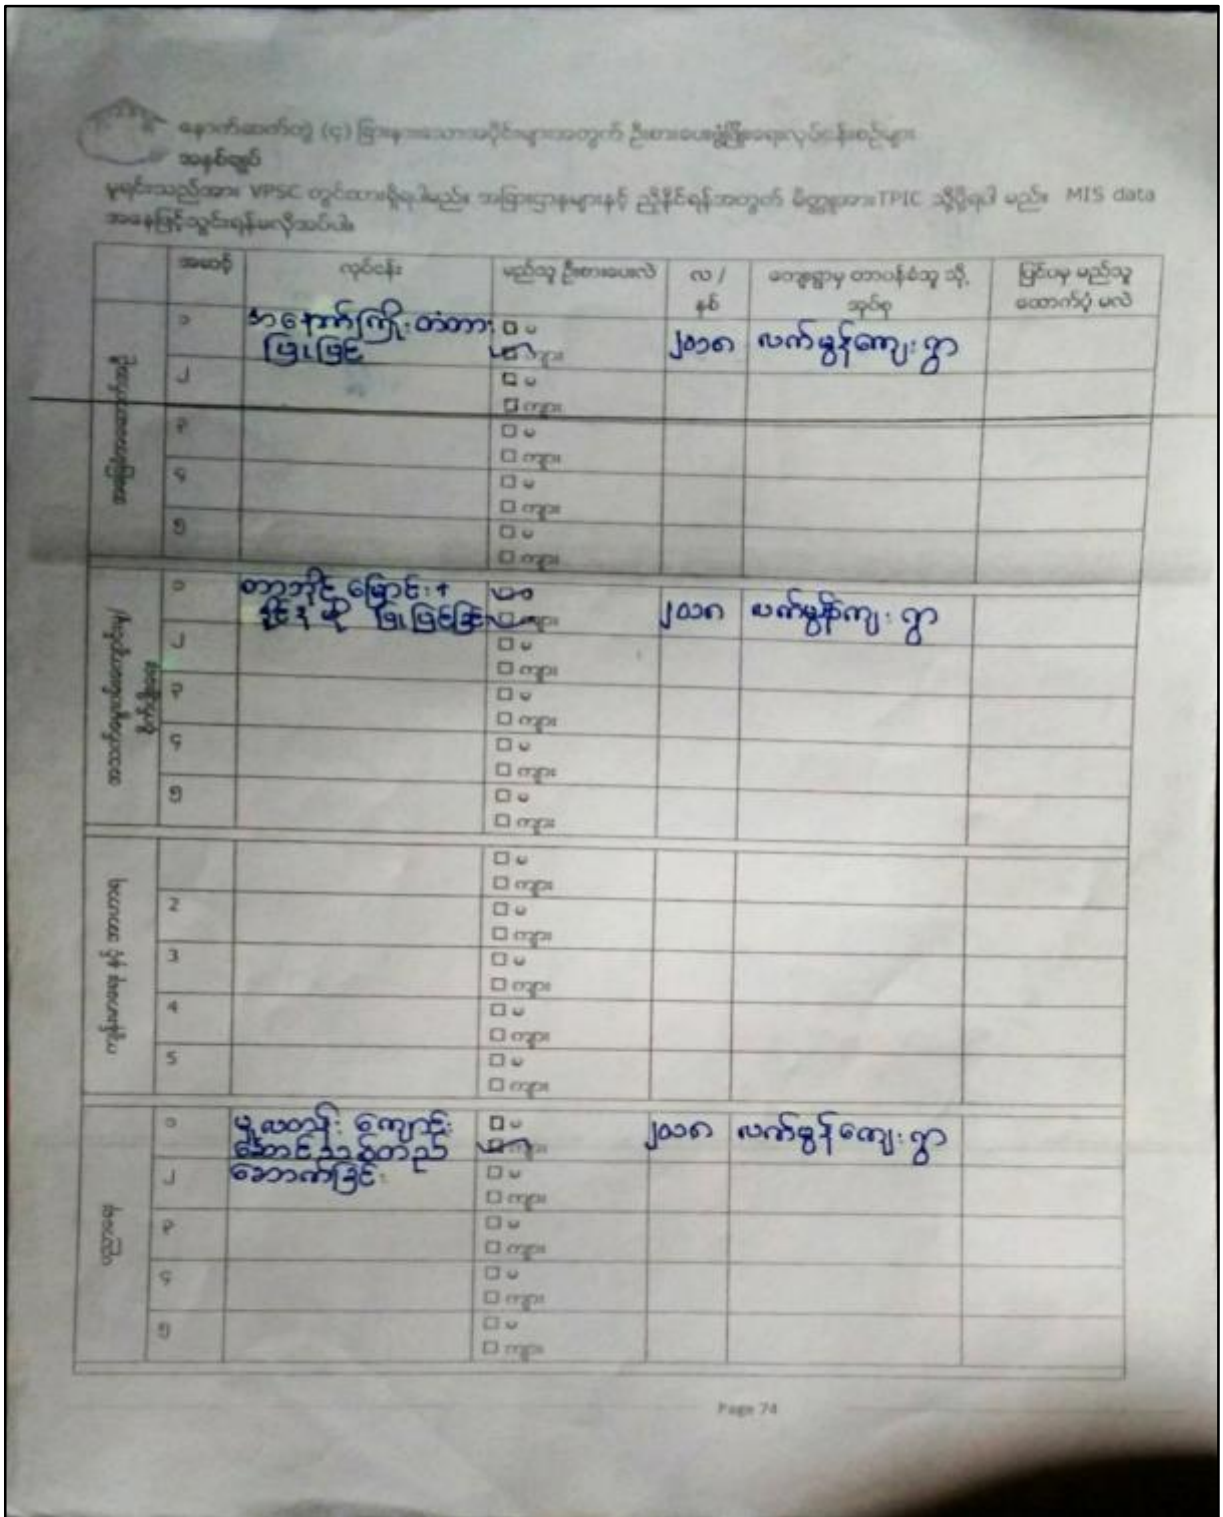 နောက်ဆက်တွဲ (၄) ခြားနားသောအပိုင်းများအတွက် ဦးစားပေးဖွံ့ဖြိုးရေးလုပ်ငန်းစဉ်များ
အနှစ်ချုပ်
မူရင်းသည်အား VPSC တွင်ထားရှိရပါမည်။ အခြားဌာနများနှင့် ညှိနှိုင်ရန်အတွက် မိတ္တူအားTPIC သို့ပို့ရပါ မည်။ MIS data
အနေဖြင့်သွင်းရန်မလိုအပ်ပါ။
အဆင့် လုပ်ငန်း မည်သူ ဦးစားပေးလဲ လ / နှစ် ကျေးရွာမှ တာဝန်ခံသူ သို့ အုပ်စု ပြင်ပမှ မည်သူ ထောက်ပံ့ မလဲ
၁ အနော်ကြိုးတံတား □ မ
ပြုပြင် ကျား ၂၀၁၈ လက်မွန်ကျေးရွာ
၂ □ မ
□ ကျား
၃ □ မ
□ ကျား
၄ □ မ
□ ကျား
၅ □ မ
□ ကျား
၁ မ
ပြုပြင်ခြင်း ကျား ၂၀၁၈ လက်မွန်ကျေးရွာ
၂ □ မ
□ ကျား
၃ □ မ
□ ကျား
၄ □ မ
□ ကျား
၅ □ မ
□ ကျား
□ မ
□ ကျား
2 □ မ
□ ကျား
3 □ မ
□ ကျား
4 □ မ
□ ကျား
5 □ မ
□ ကျား
ပညာရေး
၁ မူလတန်းကျောင်း □ မ
ဆောင်သစ်တည် ကျား ၂၀၁၈ လက်မွန်ကျေးရွာ
၂ ဆောက်ခြင်း □ မ
□ ကျား
၃ □ မ
□ ကျား
၄ □ မ
□ ကျား
၅ □ မ
□ ကျား
Page 74